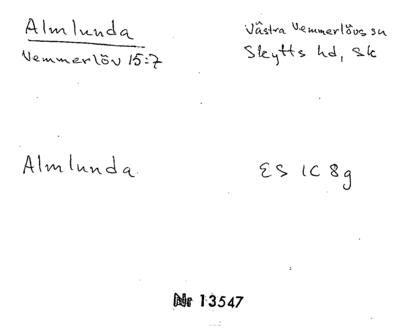 Almlunda
Vemmerlöv 15:7
Västra Vemmerlövs sn
Skytts hd, Sk
Almlunda
ES 1C 8g
Nr 13547